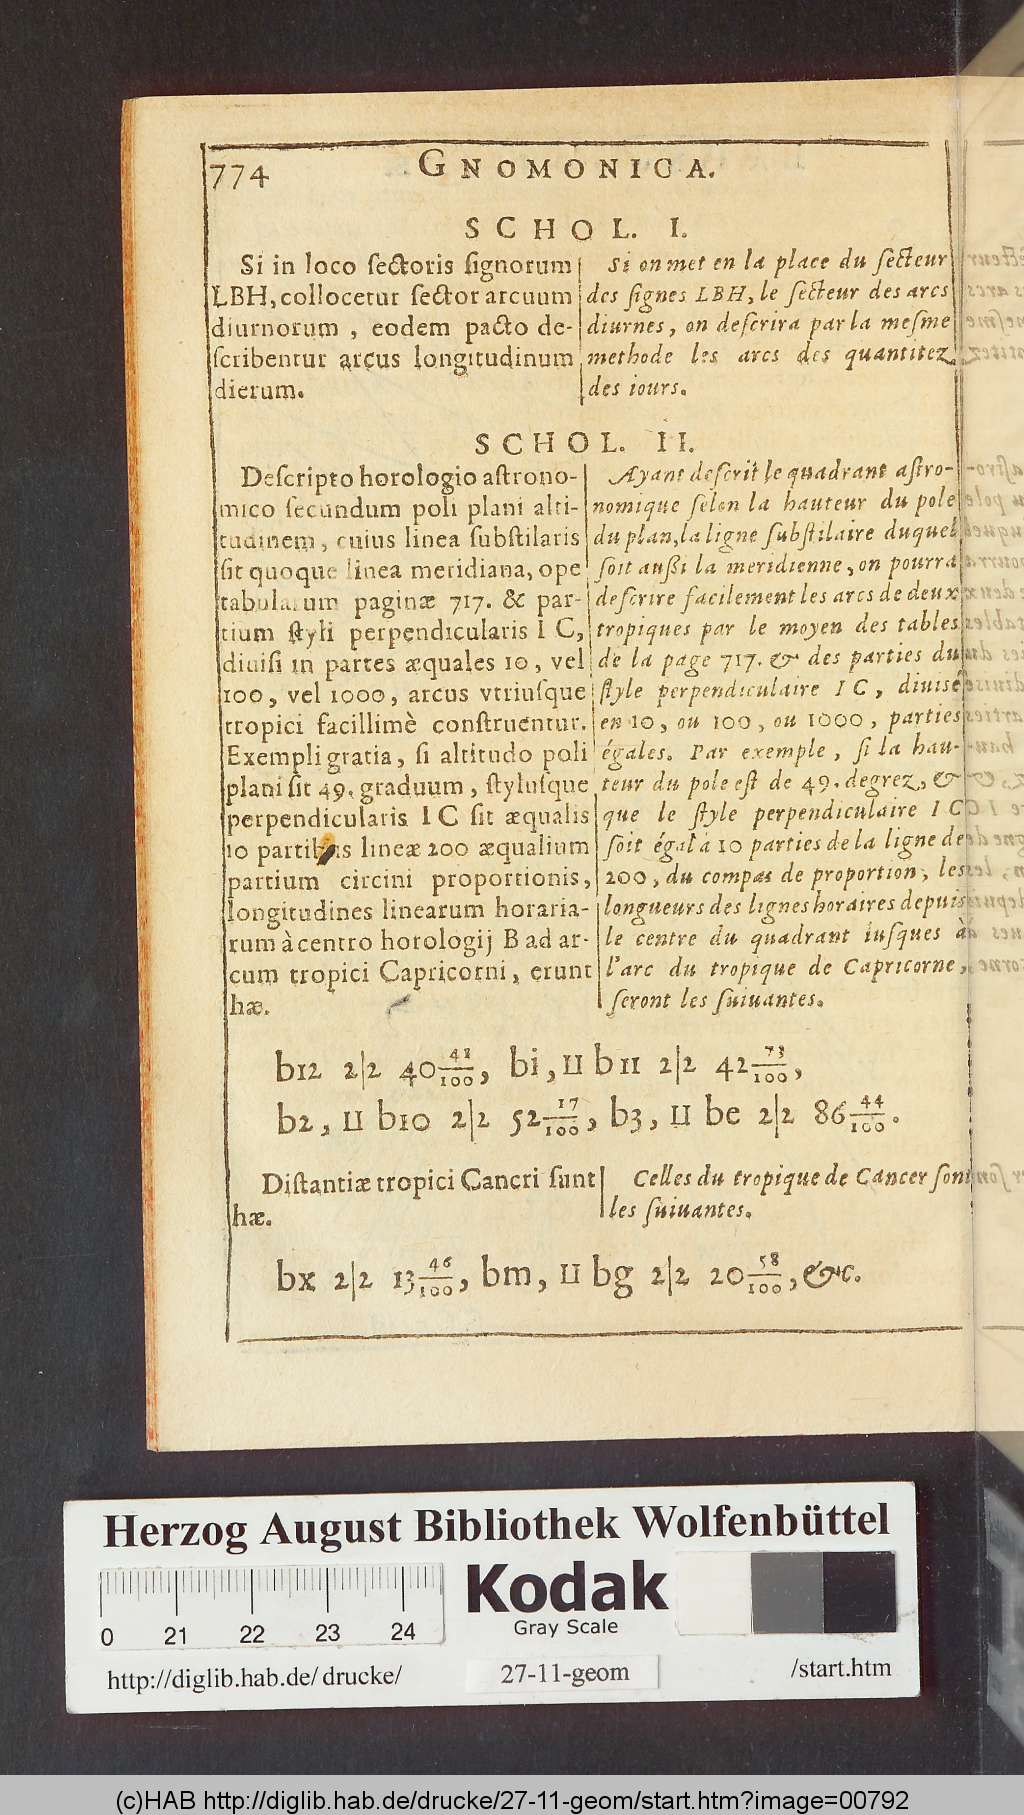 774 GNOMONICA.
SCHOL. I.
Si in loco ſectoris ſignorum
LBH, collocetur ſector arcuum
diurnorum , eodem pacto de-
ſcribentur arcus longitudinum
dierum.
Si on met en la place du ſecteur
des ſignes LBH, le ſecteur des arcs
diurnes, on deſcrira par la meſme
methode les arcs des quantitez
des iours.
SCHOL. II.
Deſcripto horologio aſtrono-
mico ſecundum poli plani alti-
tudinem, cuius linea ſubſtilaris
ſit quoque linea meridiana, ope
tabularum paginæ 717. & par-
tium ſtyli perpendicularis I C,
diuiſi in partes æquales 10, vel
100, vel 1000, arcus vtriuſque
tropici facillimè conſtruentur.
Exempli gratia, ſi altitudo poli
plani ſit 49. graduum, ſtyluſque
perpendicularis I C ſit æqualis
10 partibus lineæ 200 æqualium
partium circini proportionis,
longitudines linearum horaria-
rum à centro horologij B ad ar-
cum tropici Capricorni, erunt
hæ.
Ayant deſcrit le quadrant aſtro-
nomique ſelon la hauteur du pole
du plan, la ligne ſubſtilaire duquel
ſoit auſſi la meridienne, on pourra
deſcrire facilement les arcs de deux
tropiques par le moyen des tables
de la page 717. & des parties du
ſtyle perpendiculaire I C, diuiſé
en 10, ou 100, ou 1000, parties
égales. Par exemple, ſi la hau-
teur du pole eſt de 49. degrez, &
que le ſtyle perpendiculaire I C
ſoit égal à 10 parties de la ligne de
200, du compas de proportion, les
longueurs des lignes horaires depuis
le centre du quadrant iuſques à
l'arc du tropique de Capricorne,
ſeront les ſuiuantes.
b12 2|2 40 48/100, bi, ⊔ b11 2|2 42 73/100,
b2, ⊔ b10 2|2 52 17/100, b3, ⊔ be 2|2 86 44/100.
Diſtantiæ tropici Cancri ſunt
hæ.
Celles du tropique de Cancer ſont
les ſuiuantes.
bx 2|2 13 46/100, bm, ⊔ bg 2|2 20 58/100, &c.
Herzog August Bibliothek Wolfenbüttel
Kodak
Gray Scale
0 21 22 23 24
http://diglib.hab.de/drucke/ 27-11-geom /start.htm
(c)HAB http://diglib.hab.de/drucke/27-11-geom/start.htm?image=00792